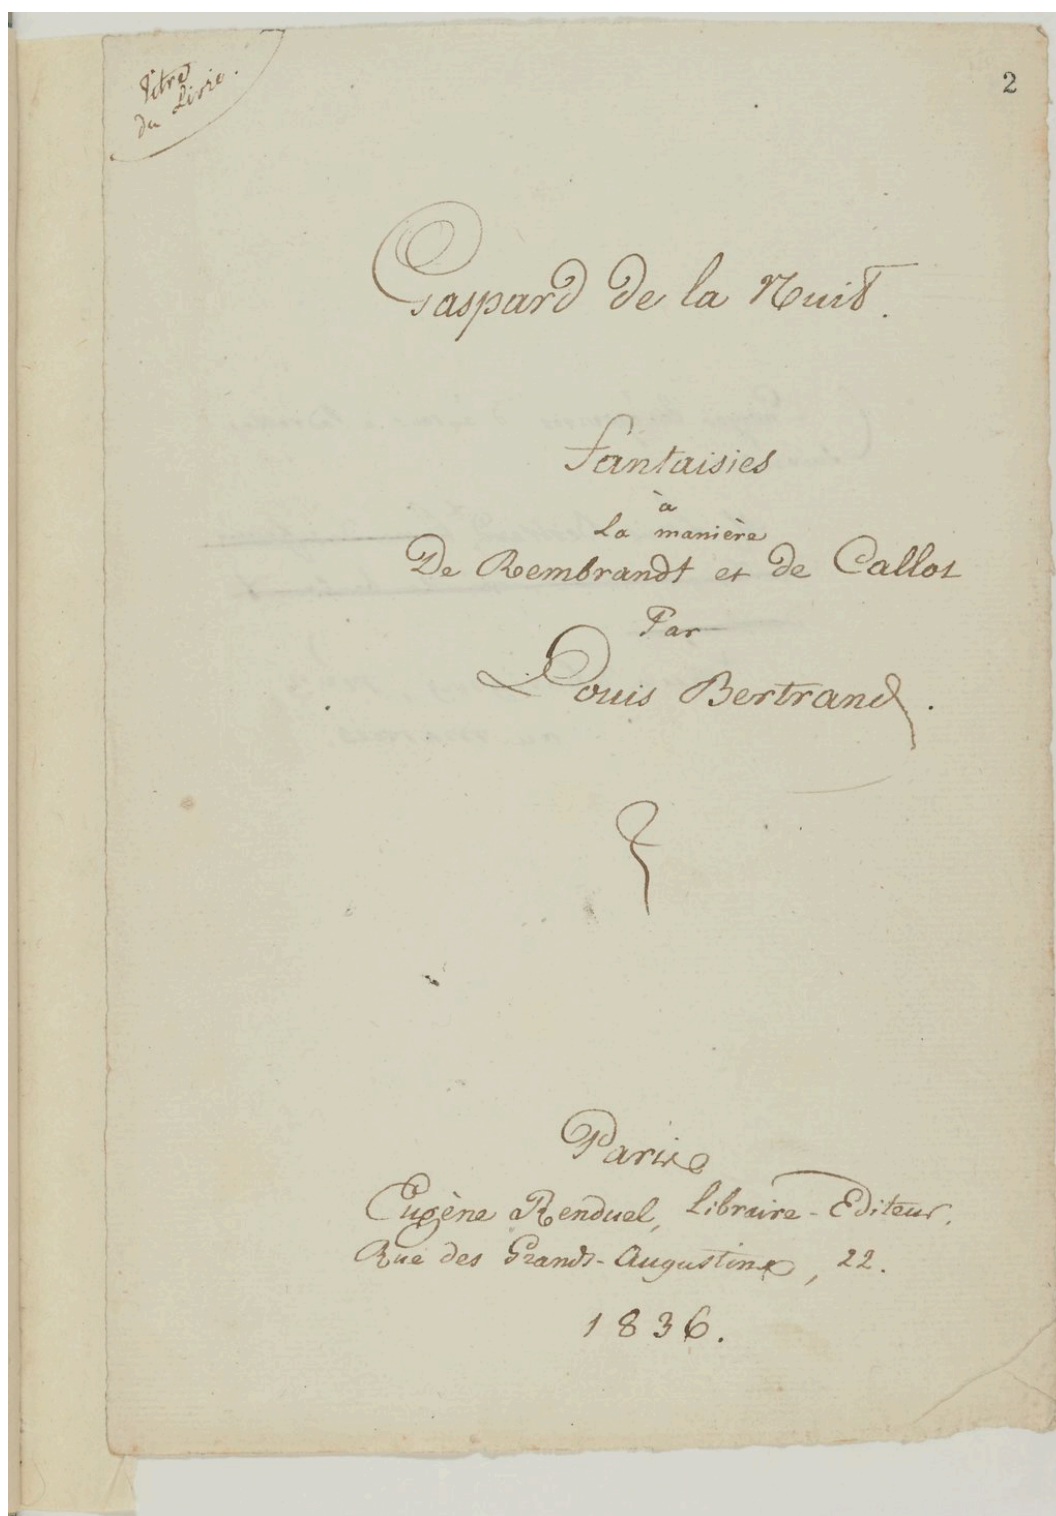 Titre
du Livre.
2
Gaspard de la Nuit.
Fantaisies
à
La manière
De Rembrandt et de Callot
Par
Louis Bertrand.
Paris
Eugène Renduel, Libraire-Editeur.
Rue des Grands-Augustins, 22.
1836.